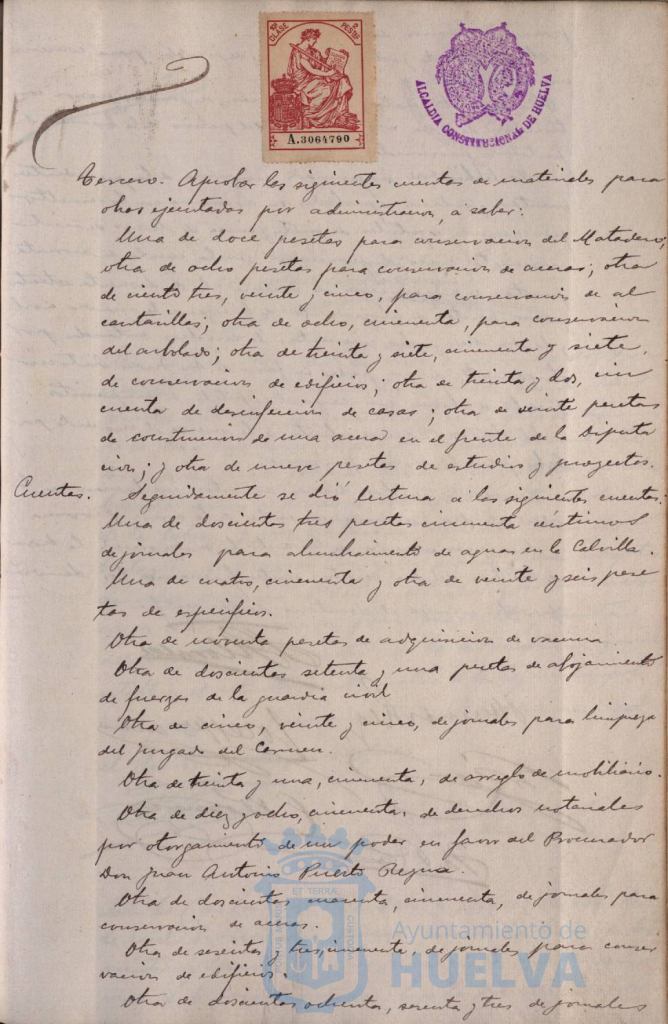 1ª CLASE
2 PESETAS
A.3064790
ALCALDIA CONSTITUCIONAL DE HUELVA
Tercero. Aprobar las siguientes cuentas de materiales para
obras ejecutadas por administracion, á saber:
Una de doce pesetas para conservacion del Matadero;
otra de ocho pesetas para conservacion de aceras; otra
de ciento tres, veinte y cinco, para conservacion de al
cantarillas; otra de ocho, cincuenta, para conservacion
del arbolado; otra de treinta y siete, cincuenta y siete,
de conservacion de edificios; otra de treinta y dos, cin
cuenta de desinfeccion de casas; otra de veinte pesetas
de construccion de una acera en el frente de la Diputa
cion; y otra de nueve pesetas de estudios y proyectos.
Cuentas. Seguidamente se dió lectura á las siguientes cuentas:
Una de doscientas tres pesetas cincuenta céntimos
de jornales para alumbramiento de aguas en la Calvilla.
Una de cuatro, cincuenta y otra de veinte y seis pese
tas de especificos.
Otra de noventa pesetas de adquisicion de vacuna
Otra de doscientas setenta y una pesetas de alojamiento
de fuerzas de la guardia civil
Otra de cinco, veinte y cinco, de jornales para limpieza
del juzgado del Carmen.
Otra de treinta y una, cincuenta, de arreglo de mobiliario.
Otra de diez y ocho, cincuenta, de derechos notariales
por otorgamiento de un poder en favor del Procurador
Don Juan Antonio Puerto
Otra de doscientas cincuenta, de jornales para
conservacion de aceras.
Otra de sesenta y tres, cincuenta, de jornales para conser
vacion de edificios.
Otra de doscientas ochenta, y tres de jornales
Ayuntamiento de
HUELVA